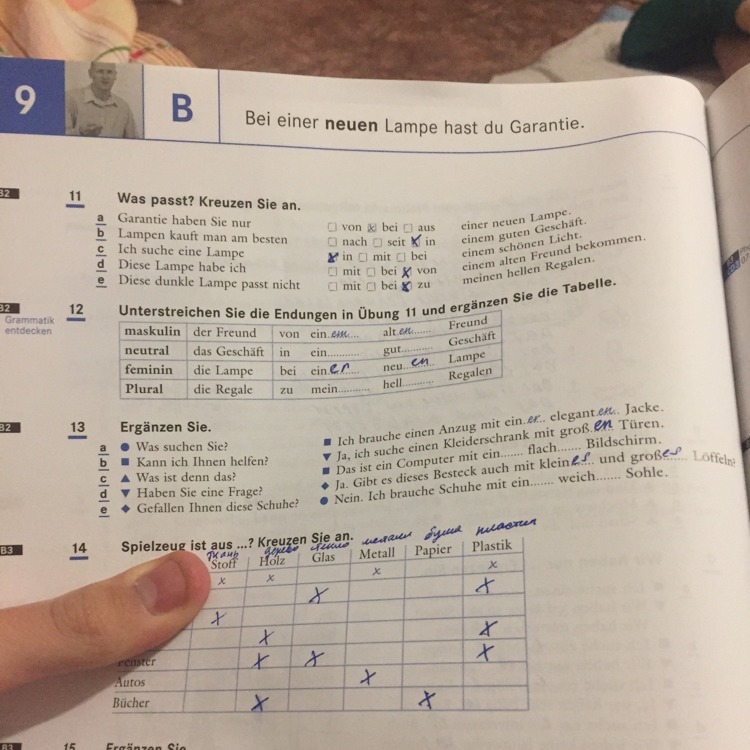 9 B Bei einer neuen Lampe hast du Garantie.
B2 11 Was passt? Kreuzen Sie an.
a Garantie haben Sie nur ☐ von ☒ bei ☐ aus einer neuen Lampe.
b Lampen kauft man am besten ☐ nach ☐ seit ☒ in einem guten Geschäft.
c Ich suche eine Lampe ☒ in ☐ mit ☐ bei einem schönen Licht.
d Diese Lampe habe ich ☐ mit ☐ bei ☒ von einem alten Freund bekommen.
e Diese dunkle Lampe passt nicht ☐ mit ☐ bei ☒ zu meinen hellen Regalen.
B2 12 Unterstreichen Sie die Endungen in Übung 11 und ergänzen Sie die Tabelle.
Grammatik
entdecken
maskulin der Freund von ein em...... alt en...... Freund
neutral das Geschäft in ein........... gut........... Geschäft
feminin die Lampe bei ein er neu.. en... Lampe
Plural die Regale zu mein........... hell........... Regalen
B2 13 Ergänzen Sie.
a ● Was suchen Sie? ■ Ich brauche einen Anzug mit ein er.. elegant en... Jacke.
b ■ Kann ich Ihnen helfen? ▼ Ja, ich suche einen Kleiderschrank mit groß. en Türen.
c ▲ Was ist denn das? ■ Das ist ein Computer mit ein....... flach....... Bildschirm.
d ▼ Haben Sie eine Frage? ◆ Ja. Gibt es dieses Besteck auch mit klein es.. und groß es.... Löffeln?
e ◆ Gefallen Ihnen diese Schuhe? ● Nein. Ich brauche Schuhe mit ein....... weich....... Sohle.
B3 14 Spielzeug ist aus ...? Kreuzen Sie an.
ткань дерево стекло металл бумага пластик
Stoff Holz Glas Metall Papier Plastik
x x x x
x x
x
x x
Fenster x x x
Autos x
Bücher x x
B3 15 Ergänzen Sie